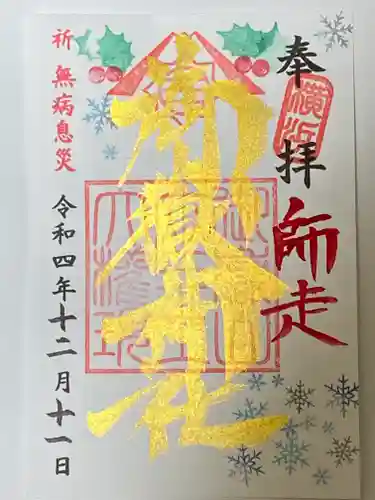 奉拝
横浜
師走
御嶽神社
祈 無病息災
令和四年十二月十一日